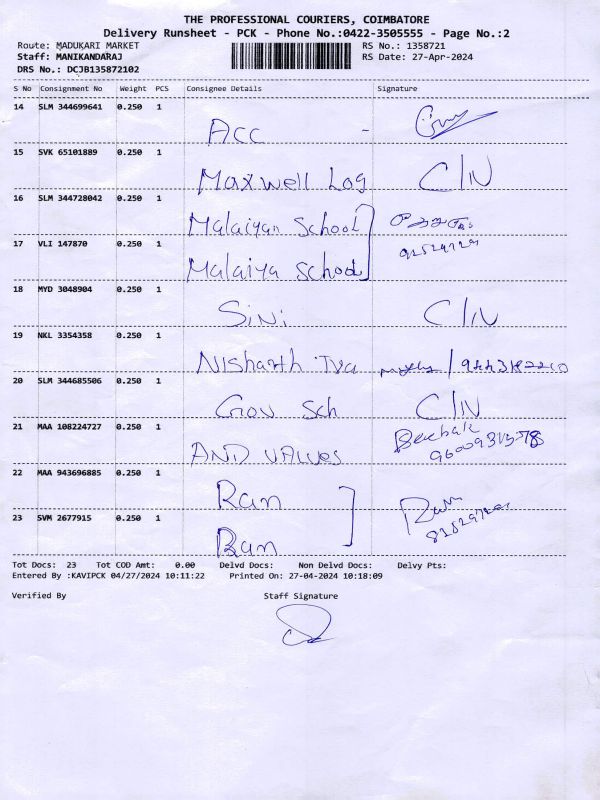 THE PROFESSIONAL COURIERS, COIMBATORE
Delivery Runsheet - PCK - Phone No.:0422-3505555 - Page No.:2
Route: MADUKARI MARKET RS No.: 1358721
Staff: MANIKANDARAJ RS Date: 27-Apr-2024
DRS No.: DCJB135872102
S No Consignment No Weight PCS Consignee Details Signature
14 SLM 344699641 0.250 1 ACC -
15 SVK 65101889 0.250 1 Maxwell Log C/N
16 SLM 344728042 0.250 1 Malaiyan School
17 VLI 147870 0.250 1 Malaiya School
18 MYD 3048904 0.250 1 Sini C/N
19 NKL 3354358 0.250 1 Nishanth Tva
20 SLM 344685506 0.250 1 Gov Sch C/N
21 MAA 108224727 0.250 1 AND VALVES
22 MAA 943696885 0.250 1 Ran
23 SVM 2677915 0.250 1 Ran
Tot Docs: 23 Tot COD Amt: 0.00 Delvd Docs: Non Delvd Docs: Delvy Pts:
Entered By :KAVIPCK 04/27/2024 10:11:22 Printed On: 27-04-2024 10:18:09
Verified By Staff Signature